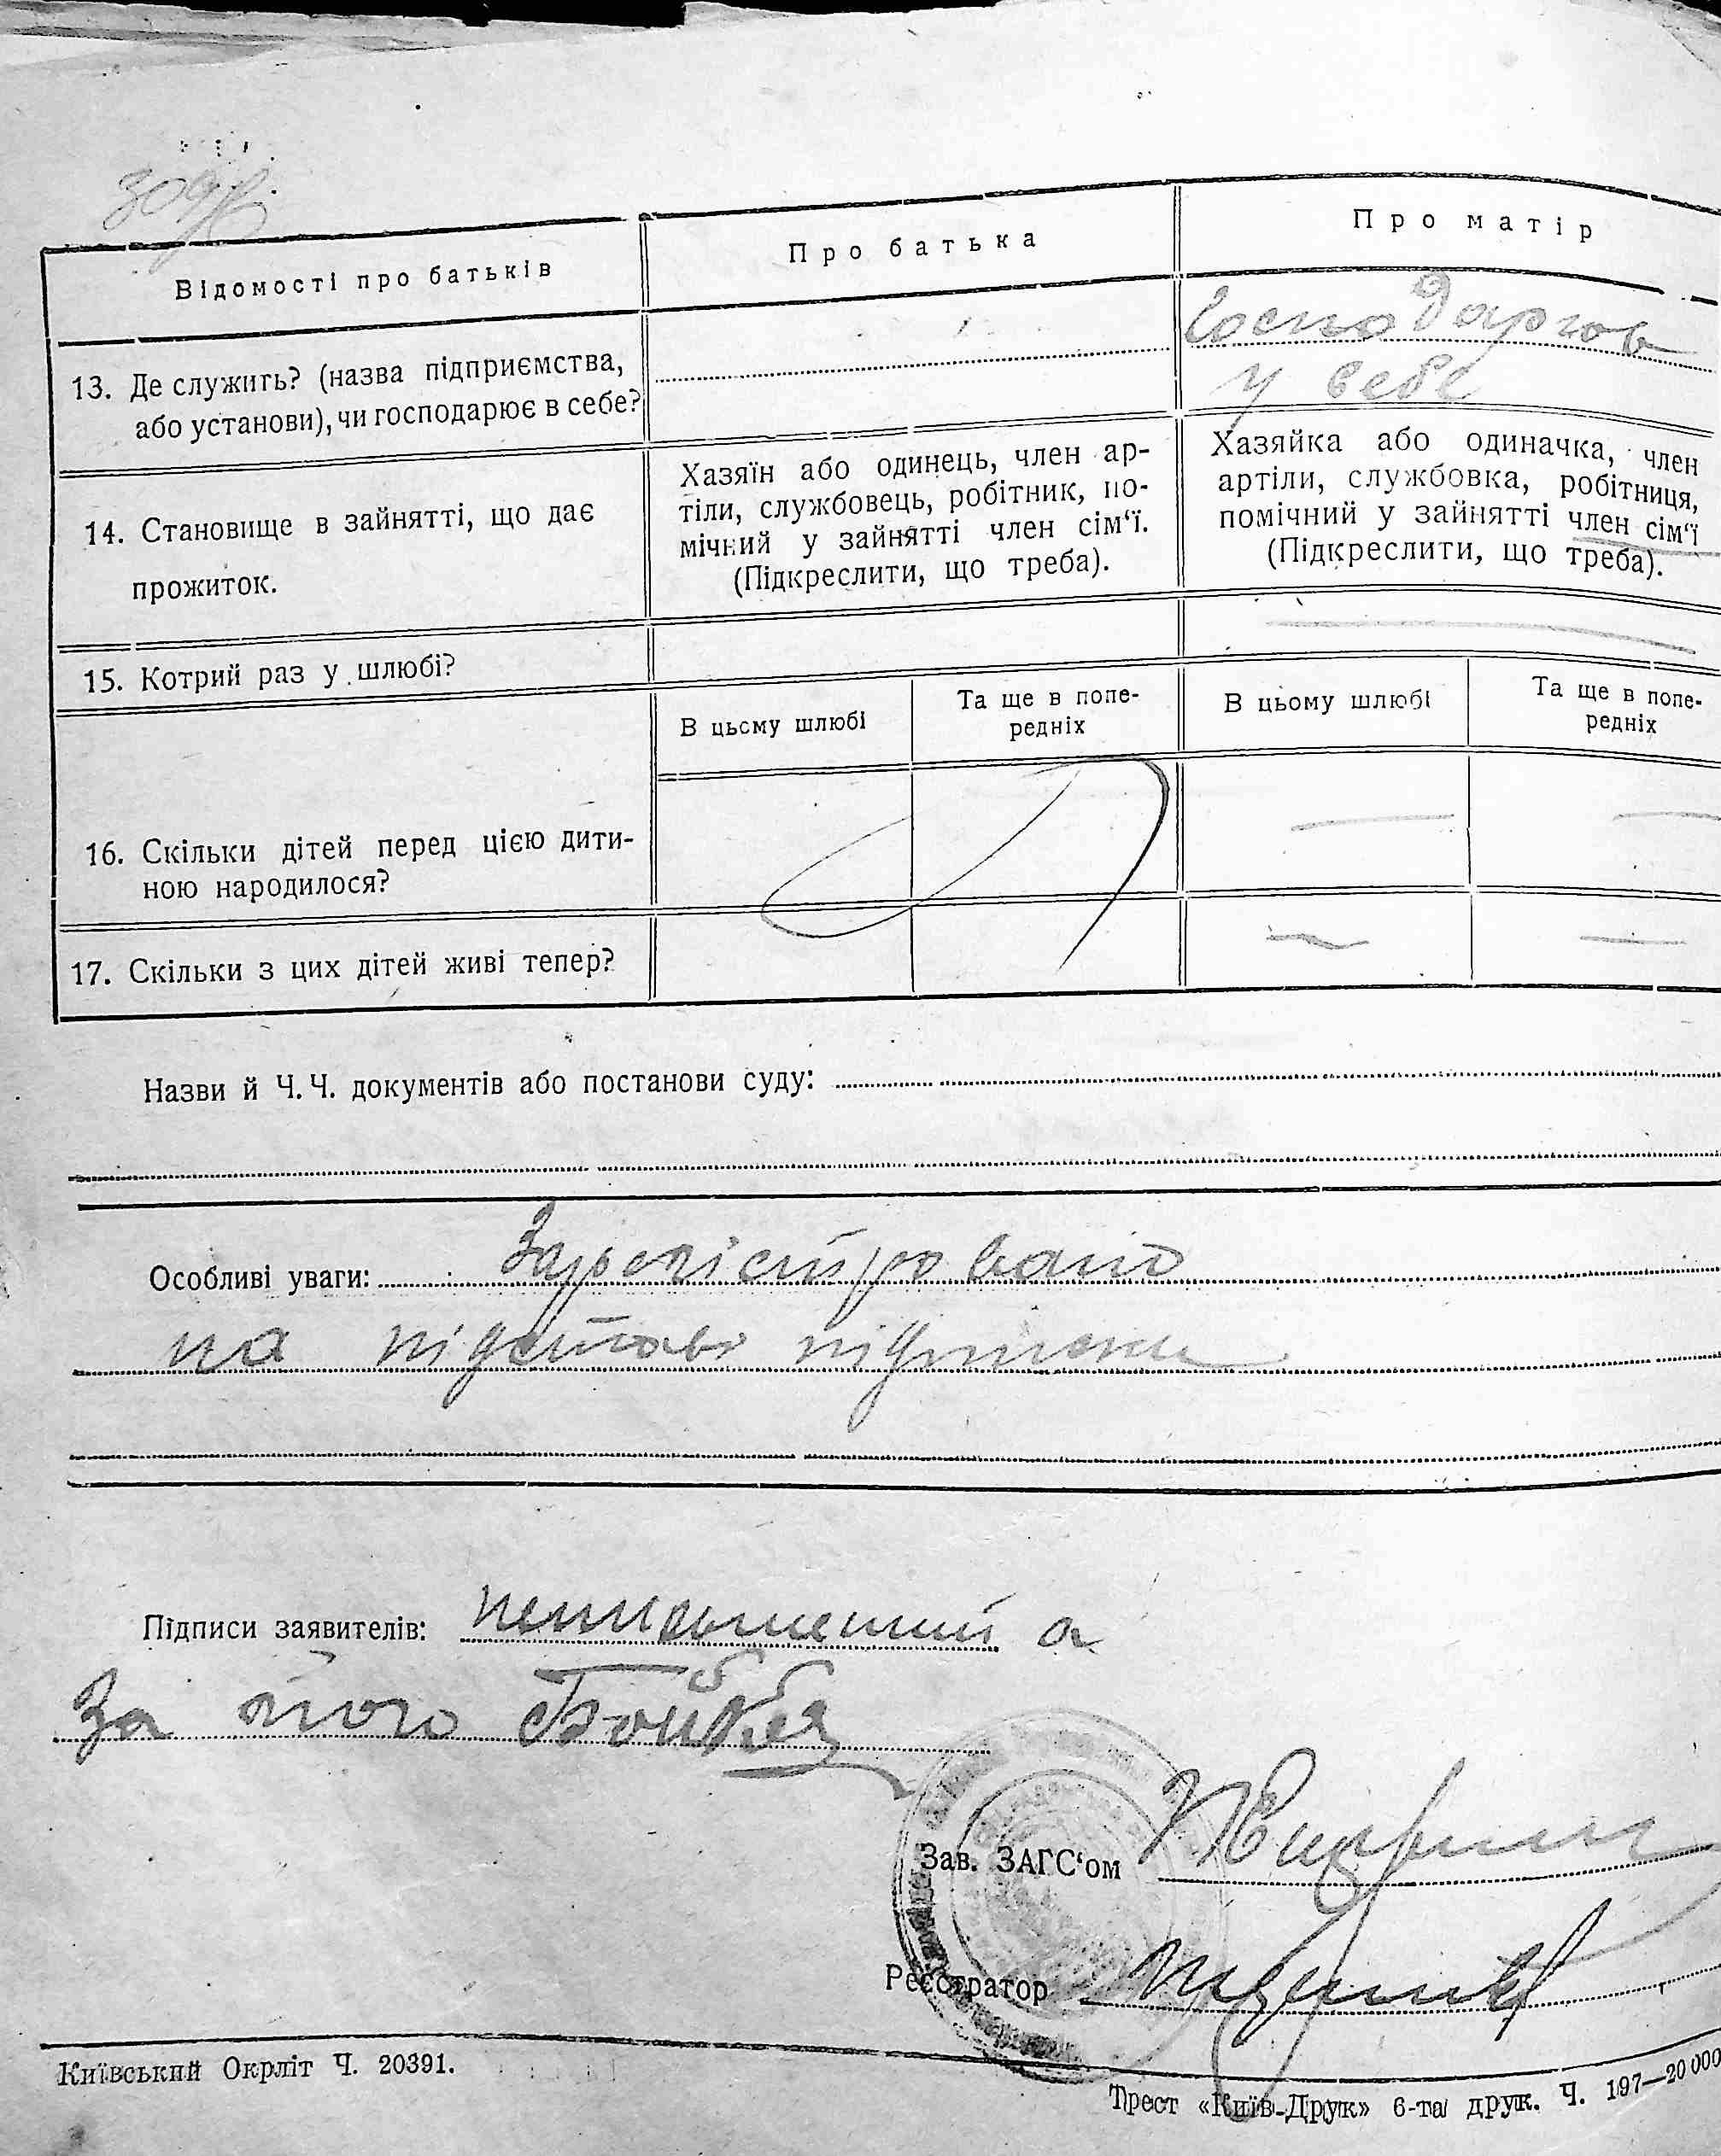 Відомості про батьків
Про батька
Про матір
13. Де служить? (назва підприємства,
або установи), чи господарює в себе?
Господарює
у себе
14. Становище в зайнятті, що дає
прожиток.
Хазяїн або одинець, член ар-
тіли, службовець, робітник, по-
мічний у зайнятті член сім‘ї.
(Підкреслити, що треба).
Хазяйка або одиначка, член
артіли, службовка, робітниця,
помічний у зайнятті член сім‘ї
(Підкреслити, що треба).
15. Котрий раз у шлюбі?
В цьому шлюбі
Та ще в попе-
редніх
В цьому шлюбі
Та ще в попе-
редніх
16. Скільки дітей перед цією дити-
ною народилося?
17. Скільки з цих дітей живі тепер?
Назви й Ч. Ч. документів або постанови суду:
Особливі уваги: Зарегістровано
на підставі підписки
Підписи заявителів: неписьменний а
За його
Зав. ЗАГС‘ом
Реєстратор
Київський Окрліт Ч. 20391.
Трест «Київ-Друк» 6-та друк. Ч. 197—20 000